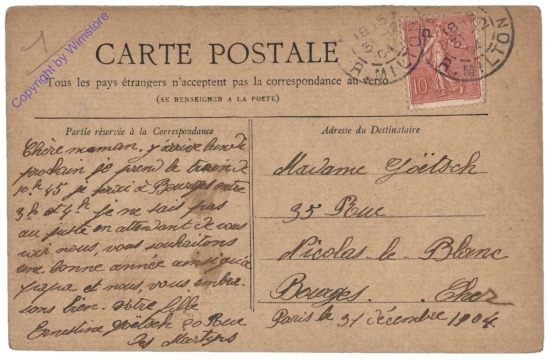 1
Copyright by Wimstore
CARTE POSTALE
Tous les pays étrangers n'acceptent pas la correspondance au verso
(SE RENSEIGNER A LA POSTE)
Partie réservée à la Correspondance
Chère maman, j'arrive lundi
prochain je prend le train de
10h 45 je serai à Bourges entre
3h et 4h je ne sais pas
au juste en attendant de vous
voir nous, vous souhaitons
une bonne année ainsi qu'a
papa et nous, vous embras
sons bien. votre fille
Ernestine Goëtsch 80 Rue
des Martyrs
Adresse du Destinataire
Madame Goëtsch
35 Rue
Nicolas le Blanc
Bourges. Cher
Paris le 31 décembre 1904.
R. MILTON
R. MILTON
10